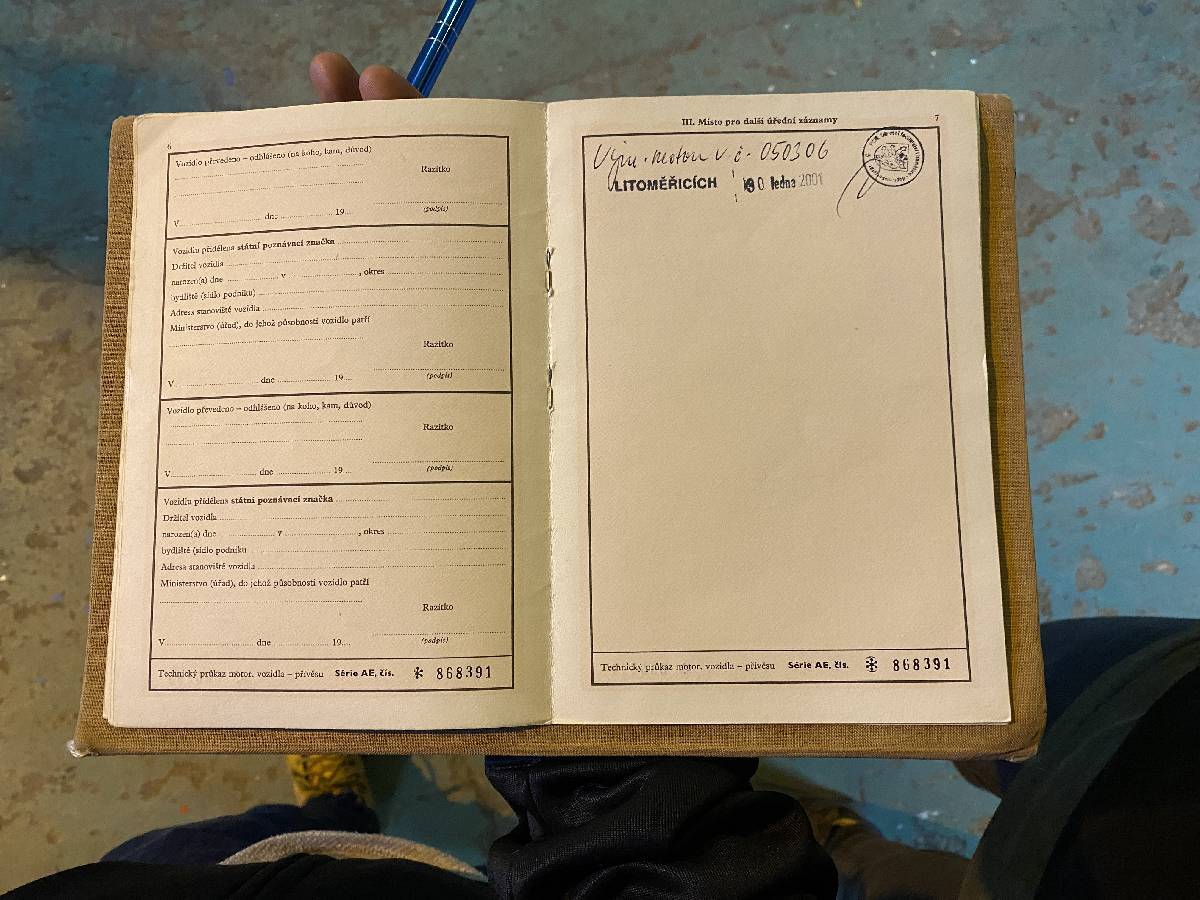 6
Vozidlo převedeno – odhlášeno (na koho, kam, důvod)
Razítko
V ... dne ... 19...
(podpis)
Vozidlu přidělena státní poznávací značka
Držitel vozidla
narozen(a) dne ... v ... , okres
bydliště (sídlo podniku)
Adresa stanoviště vozidla
Ministerstvo (úřad), do jehož působnosti vozidlo patří
Razítko
V ... dne ... 19...
(podpis)
Vozidlo převedeno – odhlášeno (na koho, kam, důvod)
Razítko
V ... dne ... 19...
(podpis)
Vozidlu přidělena státní poznávací značka
Držitel vozidla
narozen(a) dne ... v ... , okres
bydliště (sídlo podniku
Adresa stanoviště vozidla
Ministerstvo (úřad), do jehož působnosti vozidlo patří
Razítko
V ... dne ... 19...
(podpis)
Technický průkaz motor. vozidla – přívěsu Série AE, čís. 868391
7
III. Místo pro další úřední záznamy
motoru v. č. 050306
V LITOMĚŘICÍCH ledna 2001
Technický průkaz motor. vozidla – přívěsu Série AE, čís. 868391